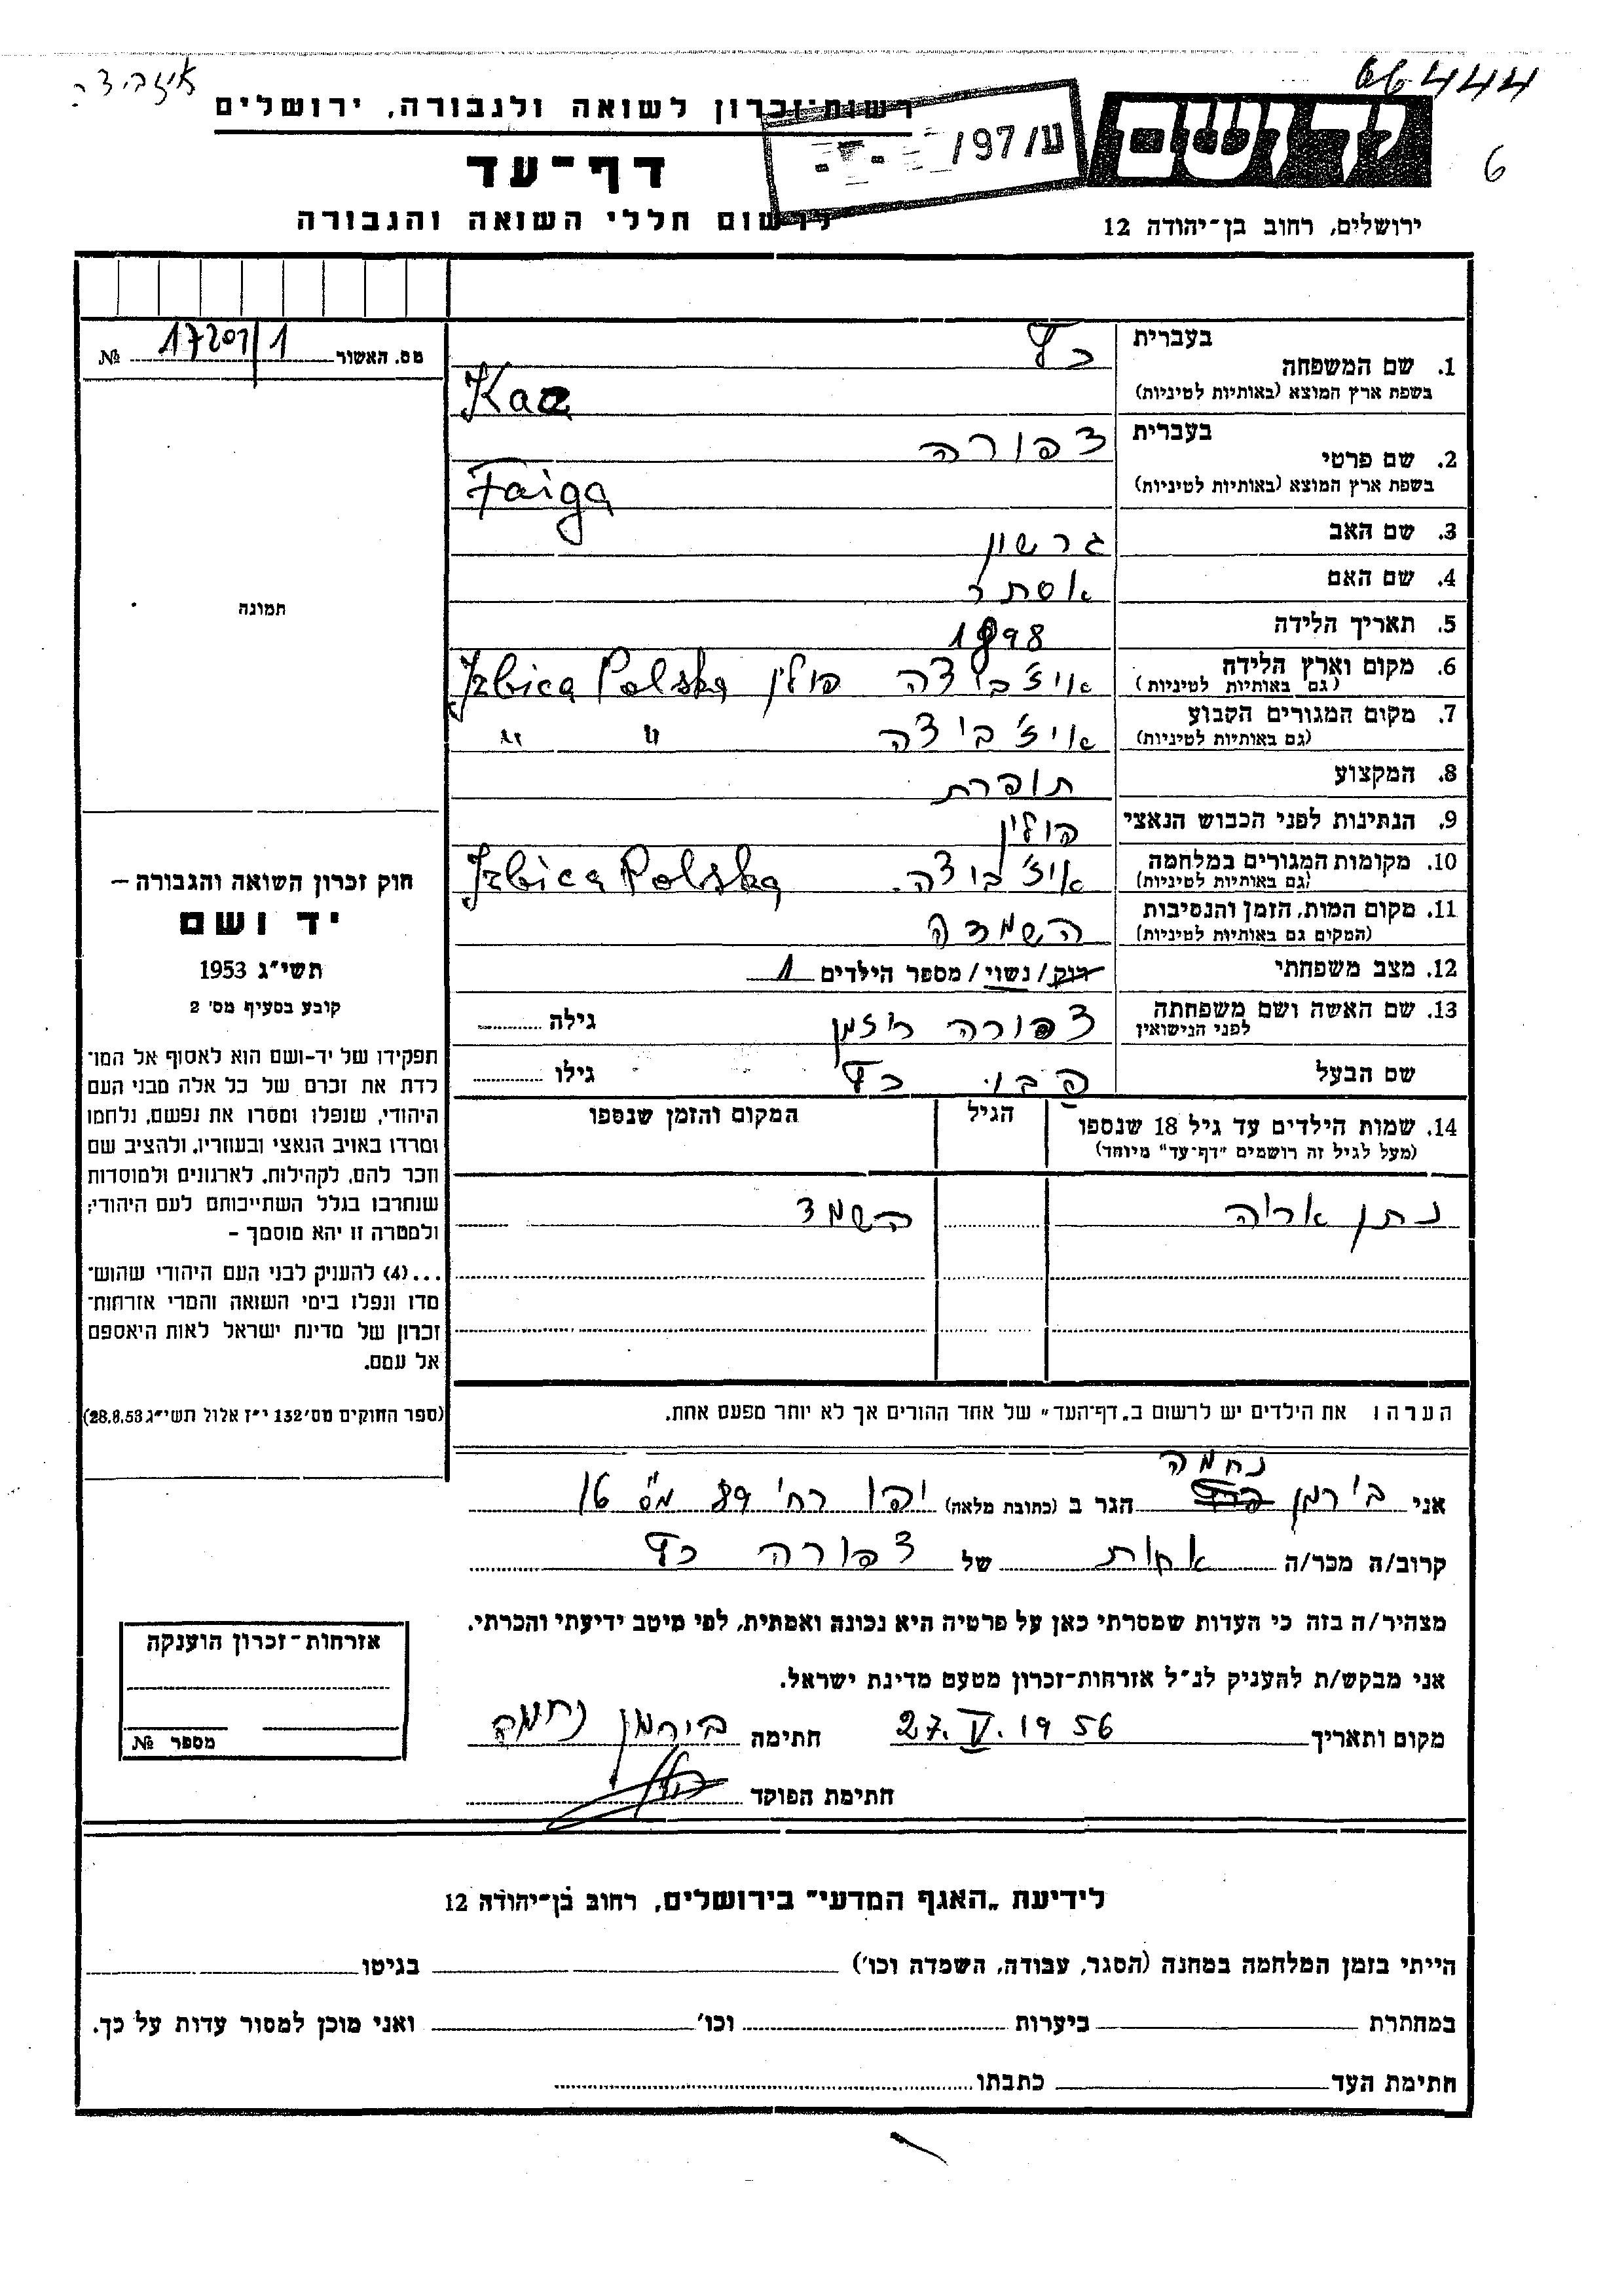 66444
איזביצה
רשות-זכרון לשואה ולגבורה, ירושלים
יד ושם
ע/97/
6
דף-עד
לרשום חללי השואה והגבורה
ירושלים, רחוב בן-יהודה 12
מס. האשור 17201/1 №
1. שם המשפחה
בעברית כץ
בשפת ארץ המוצא (באותיות לטיניות) Kaz
2. שם פרטי
בעברית צפורה
בשפת ארץ המוצא (באותיות לטיניות) Faiga
3. שם האב גרשון
4. שם האם אסתר
5. תאריך הלידה 1898
6. מקום וארץ הלידה איזביצה פולין Izbica Polska
(גם באותיות לטיניות)
7. מקום המגורים הקבוע איזביצה " "
(גם באותיות לטיניות)
8. המקצוע תופרת
9. הנתינות לפני הכבוש הנאצי פולין
10. מקומות המגורים במלחמה איזביצה. Izbica Polska
(גם באותיות לטיניות)
11. מקום המות, הזמן והנסיבות השמדה
(המקום גם באותיות לטיניות)
12. מצב משפחתי רוק/נשוי/ מספר הילדים 1
13. שם האשה ושם משפחתה צפורה גילה
לפני הנישואין
שם הבעל כץ גילו
14. שמות הילדים עד גיל 18 שנספו הגיל המקום והזמן שנספו
(מעל לגיל זה רושמים "דף-עד" מיוחד)
נתן אריה השמד
הערה ו את הילדים יש לרשום ב„דף-העד" של אחד ההורים אך לא יותר מפעם אחת.
תמונה
חוק זכרון השואה והגבורה –
יד ושם
תשי"ג 1953
קובע בסעיף מס' 2
תפקידו של יד-ושם הוא לאסוף אל המו־
לדת את זכרם של כל אלה מבני העם
היהודי, שנפלו ומסרו את נפשם, נלחמו
ומרדו באויב הנאצי ובעוזריו, ולהציב שם
וזכר להם, לקהילות, לארגונים ולמוסדות
שנחרבו בגלל השתייכותם לעם היהודי;
ולמטרה זו יהא מוסמך –
...(4) להעניק לבני העם היהודי שהוש־
מדו ונפלו בימי השואה והמרי אזרחות־
זכרון של מדינת ישראל לאות היאספם
אל עמם.
(ספר החוקים מס' 132 י"ז אלול תשי"ג 28.8.53)
נחמה
אני בירמן הגר ב (כתובת מלאה) יפו רח' 89 מס' 16
קרוב/ה מכר/ה אחות של צפורה כץ
מצהיר/ה בזה כי העדות שמסרתי כאן על פרטיה היא נכונה ואמתית, לפי מיטב ידיעתי והכרתי.
אני מבקש/ת להעניק לנ"ל אזרחות-זכרון מטעם מדינת ישראל.
מקום ותאריך 27.V.1956 חתימה בירמן נחמה
חתימת הפוקד
אזרחות-זכרון הוענקה
מספר №
לידיעת „האגף המדעי" בירושלים, רחוב בן-יהודה 12
הייתי בזמן המלחמה במחנה (הסגר, עבודה, השמדה וכו') בגיטו
במחתרת ביערות וכו' ואני מוכן למסור עדות על כך.
חתימת העד כתבתו